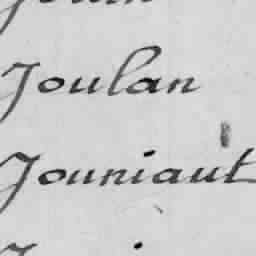 Joulan
Jouniaut